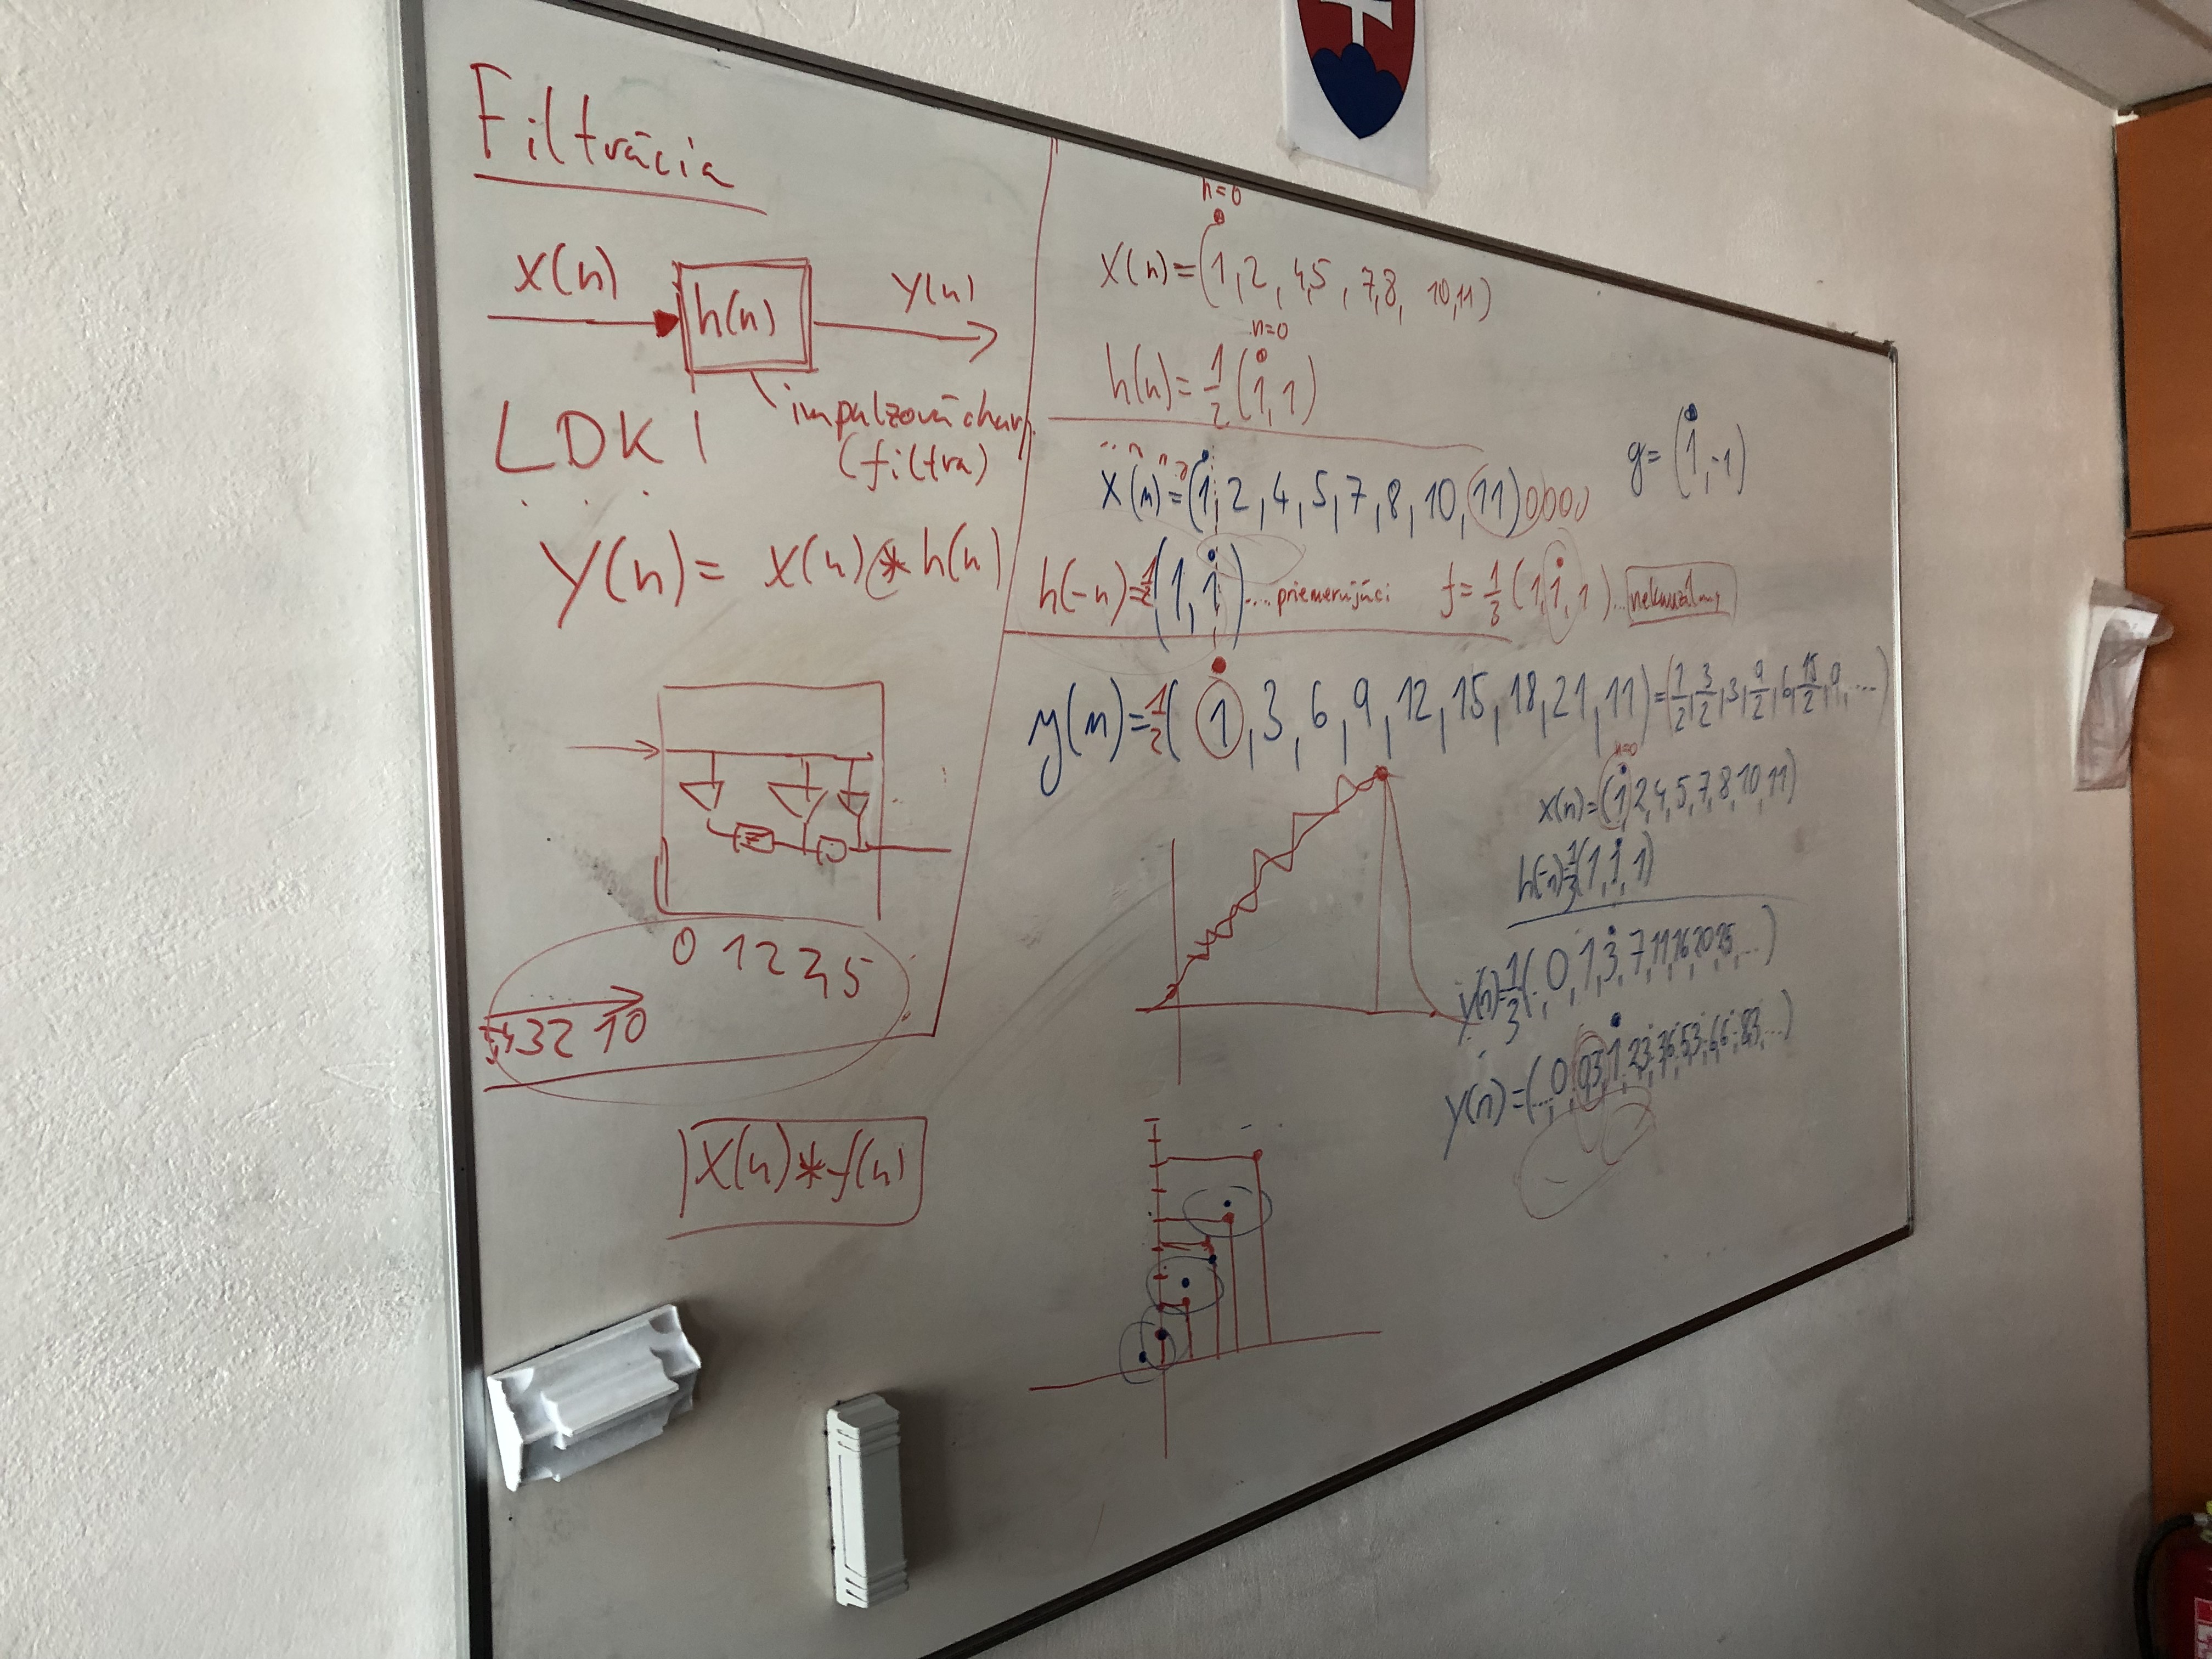 Filtrácia
x(n)
h(n)
y(n)
impulzová char.
(filtra)
LDKI
y(n) = x(n) * h(n)
0 1 2 3 4 5
3 2 1 0
x(n) * f(n)
n=0
x(n) = (1, 2, 4, 5, 7, 8, 10, 11)
n=0
h(n) = 1/2 (1, 1)
x(n) = (1, 2, 4, 5, 7, 8, 10, 11) 0 0 0 0
g = (1, -1)
h(-n) = 1/2 (1, 1) ... priemerujúci
f = 1/3 (1, 1, 1) ... nekauzálny
y(n) = 1/2 (1, 3, 6, 9, 12, 15, 18, 21, 11) = (1/2, 3/2, 3, 9/2, 6, 15/2, 9, ...)
n=0
x(n) = (1, 2, 4, 5, 7, 8, 10, 11)
h(-n) = 1/3 (1, 1, 1)
y(n) = 1/3 (., 0, 1, 3, 7, 11, 16, 20, 25, ...)